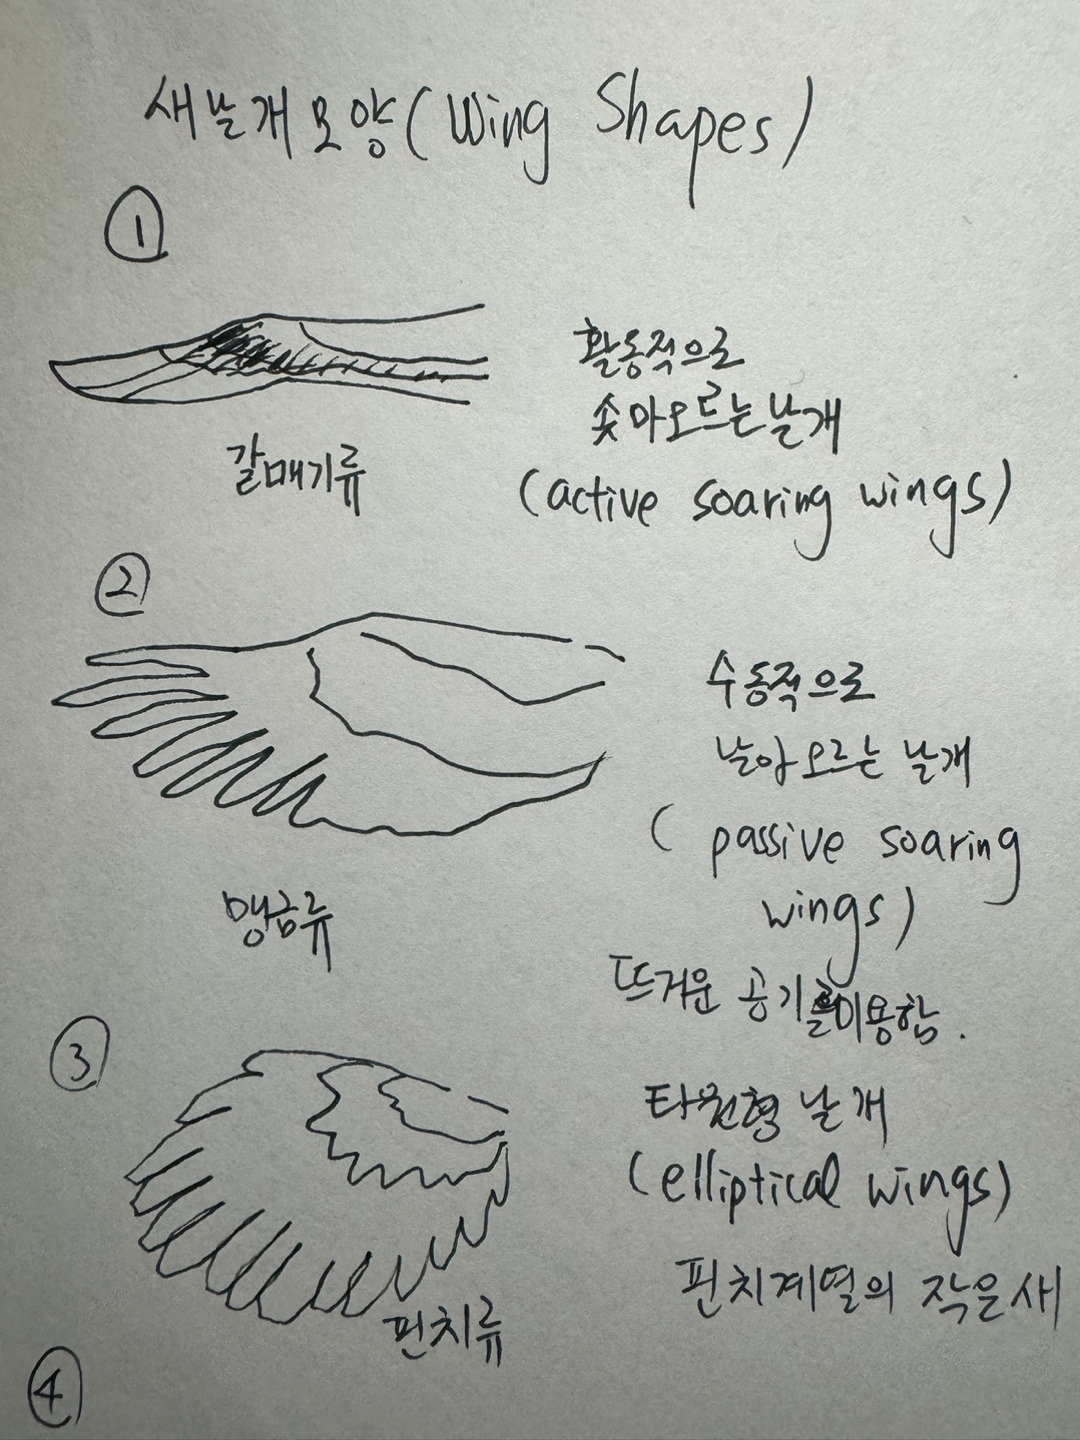 새날개모양(Wing Shapes)
①
활동적으로
솟아오르는날개
갈매기류
(active soaring wings)
②
수동적으로
날아오르는 날개
(passive soaring
wings)
맹금류
뜨거운 공기를이용함.
③
타원형 날개
(elliptical wings)
핀치계열의 작은새
핀치류
④